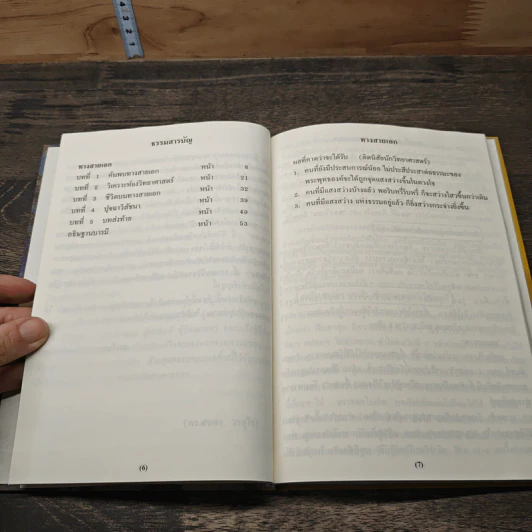 ธรรมสารบัญ
ทางสายเอก
บทที่ 1 ค้นพบทางสายเอก หน้า 6
บทที่ 2 วิเคราะห์องวิทยาศาสตร์ หน้า 21
บทที่ 3 ชีวิตบนทางสายเอก หน้า 32
บทที่ 4 ปุจฉาวิสัชนา หน้า 39
บทที่ 5 บทส่งท้าย หน้า 49
อธิษฐานบารมี หน้า 53
(6)
ทางสายเอก
ผลที่คาดว่าจะได้รับ (ติดนิสัยนักวิทยาศาสตร์)
1. คนที่ยังมีประสบการณ์น้อย ไม่ประสีประสาต่อธรรมะของ
พระพุทธองค์จะได้ถูกจุดแสงสว่างขึ้นในดวงใจ
2. คนที่มีแสงสว่างบ้างแล้ว พอริบหรี่ริบหรี่ ก็จะสว่างไสวขึ้นกว่าเดิม
3. คนที่มีแสงสว่าง แห่งธรรมอยู่แล้ว ก็ยิ่งสว่างกระจ่างยิ่งขึ้น
(7)